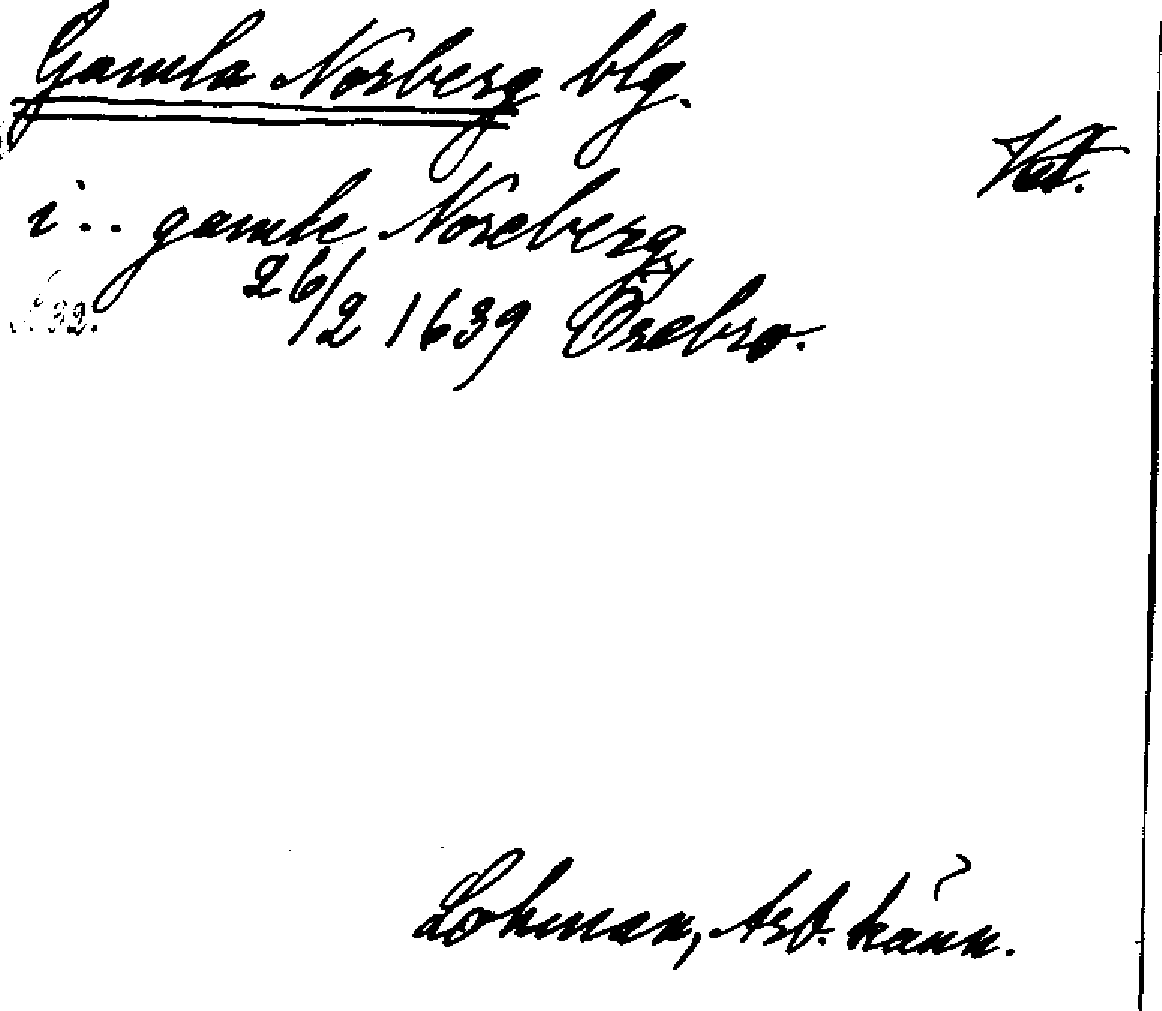 Gamla Norberg blg.
Vst.
i.. gamle Noreberg
26/2 1639 Örebro.
32.
Lohman, Arb. känn.